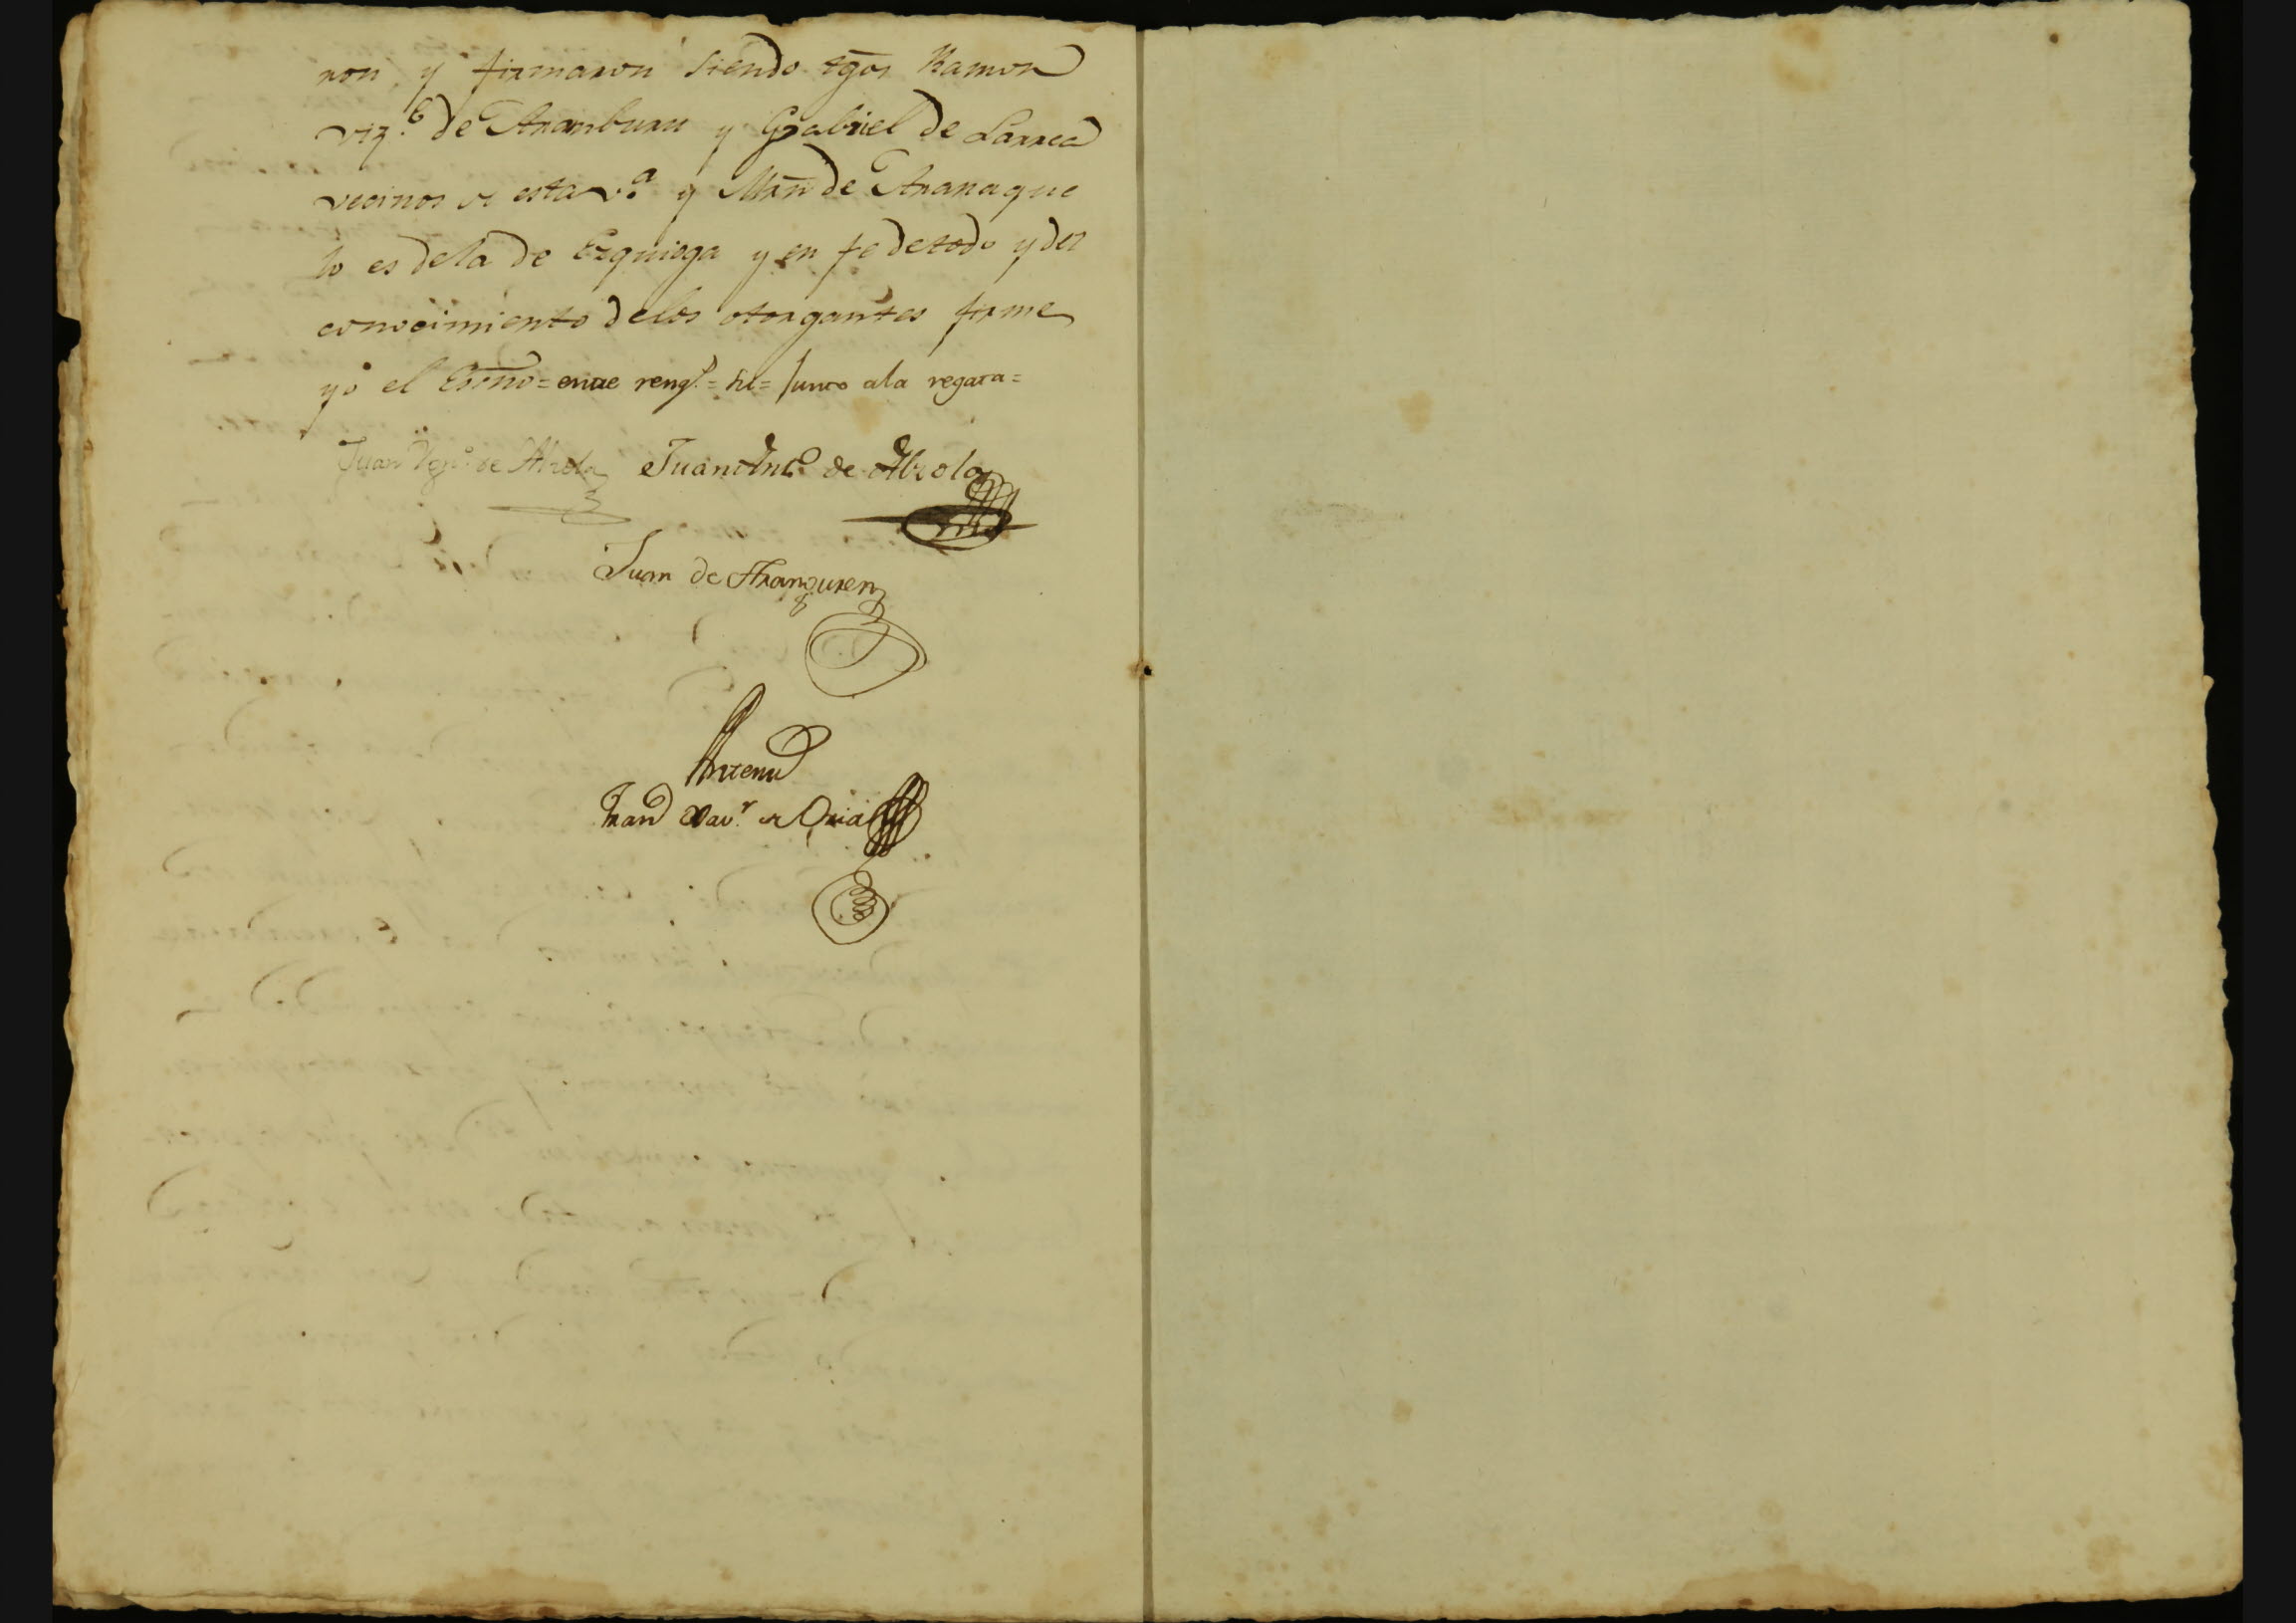 ron, y firmaron siendo tgos Ramon
viz.te de Aramburu y Gabriel de Larrea
vecinos de esta v.a y Mrn de Aranaque
lo es dela de Ezquioga y en fe detodo y del
conocimiento delos otorgantes firme
yo el Essno = entre reng.s = hi = Junto ala regata =
Juan de Alzola Juan Ant.o de Alzola
Juan de Aranguren
Antemi
Fran Xav.r de Oria